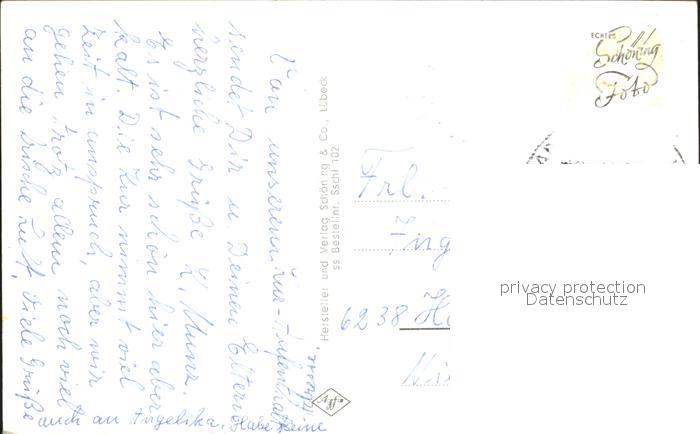 Von unserem Kur-Aufenthalt
sendet Dir u. Deinen Eltern
herzliche Grüße L. Munz.
Es ist sehr schön hier aber
kalt. Die Kur nimmt viel
Zeit in anspruch, aber wir
gehen trotz allem noch viel
an die frische Luft. Viele Grüße
auch an Angelika. Habe Deine
Hersteller und Verlag Schöning & Co., Lübeck
ss Bestellnr. Sschl 102
Agfa
ECHTES
Schöning
Foto
Frl.
Ing
6238 Ho
privacy protection
Datenschutz